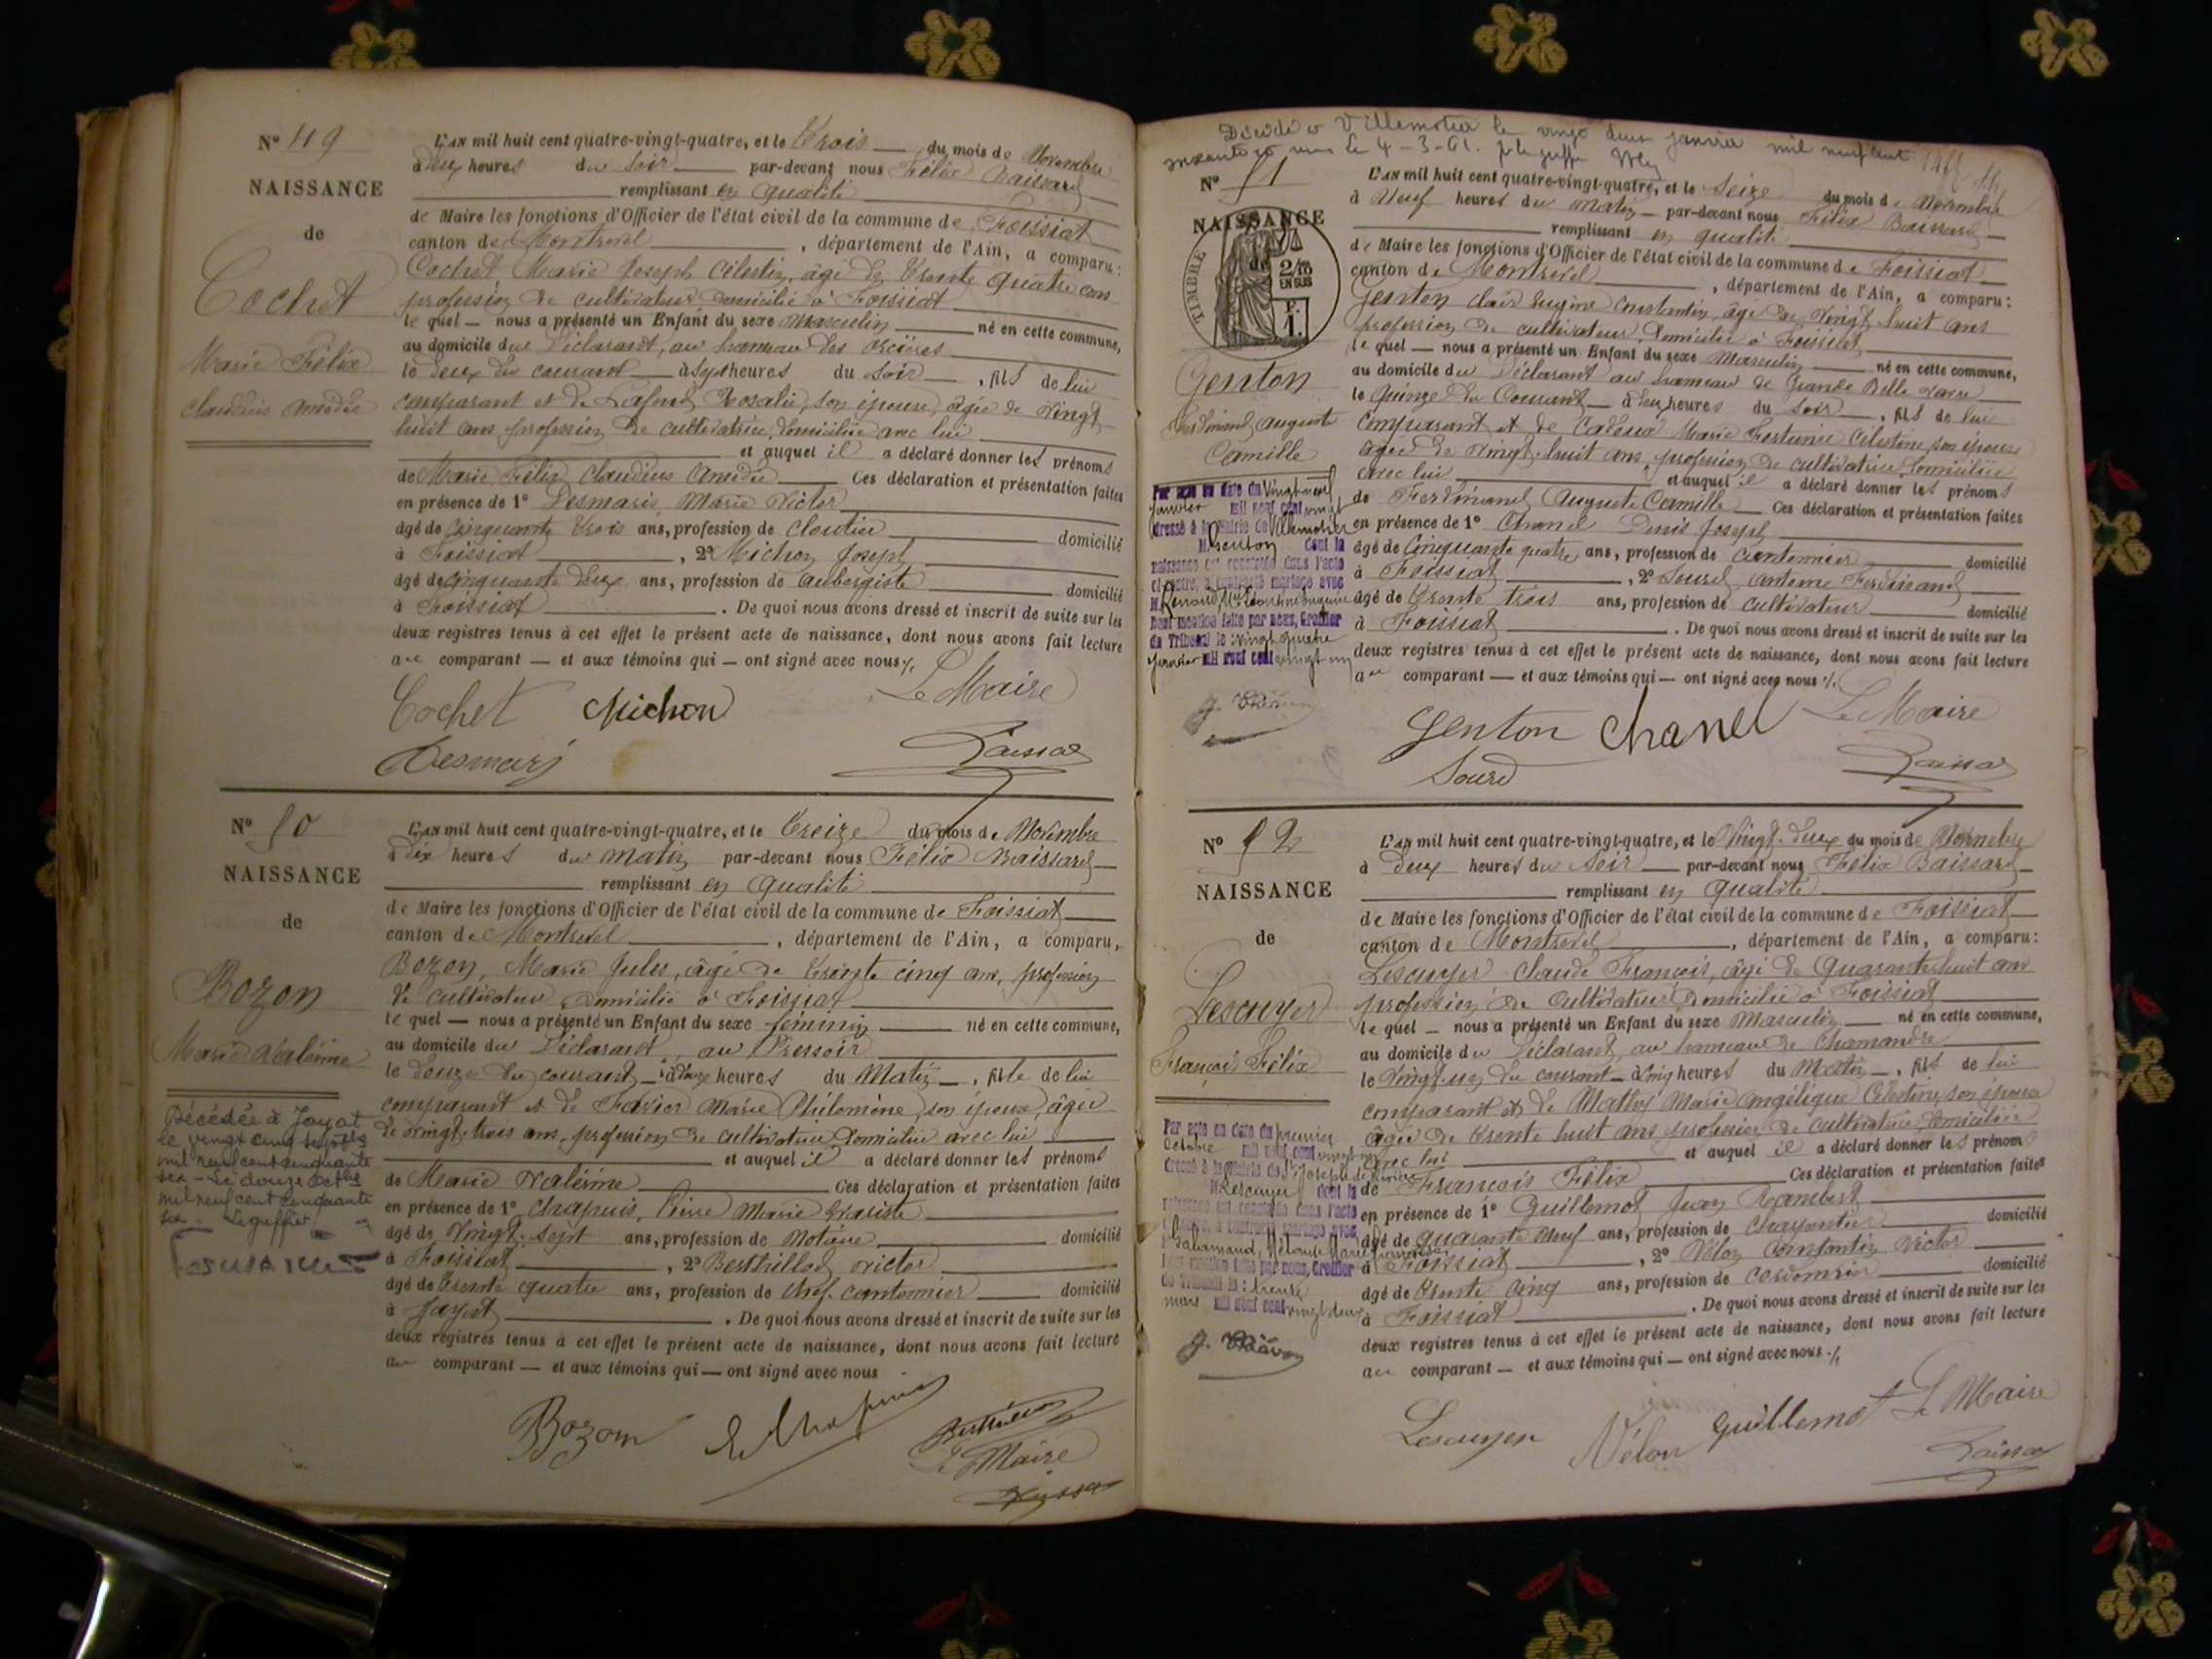 N° 49
NAISSANCE
de
Cochet
Marie Félix
Claudius Amédée
L'AN mil huit cent quatre-vingt-quatre, et le Trois du mois de Novembre
à deux heures du soir par-devant nous Félix Baissard
remplissant en qualité
de Maire les fonctions d'Officier de l'état civil de la commune de Foissiat
canton de Montrevel, département de l'Ain, a comparu:
Cochet Marie Joseph Célestin, âgé de trente quatre ans
profession de cultivateur domicilié à Foissiat
le quel — nous a présenté un Enfant du sexe Masculin né en cette commune,
au domicile du Déclarant, au hameau des
le deux du courant à sept heures du soir, fils de lui
comparant et de Lafond Rosalie, son épouse, âgée de vingt
huit ans profession de cultivatrice, domiciliée avec lui
et auquel il a déclaré donner les prénoms
de Marie Félix Claudius Amédée Ces déclaration et présentation faites
en présence de 1° Desmaris, Marie Victor
âgé de cinquante trois ans, profession de cloutier domicilié
à Foissiat, 2° Michon Joseph
âgé de cinquante deux ans, profession de aubergiste domicilié
à Foissiat. De quoi nous avons dressé et inscrit de suite sur les
deux registres tenus à cet effet le présent acte de naissance, dont nous avons fait lecture
au comparant — et aux témoins qui — ont signé avec nous ./.
Le Maire
Cochet Michon
Desmaris
Baissard
N° 50
NAISSANCE
de
Bozon
Marie Valérine
Décédée à Jayat
le vingt cinq septembre
mil neuf cent cinquante
six - Le douze octbre
mil neuf cent cinquante
six - Le greffier
L'AN mil huit cent quatre-vingt-quatre, et le treize du mois de Novembre
à dix heures du matin par-devant nous Félix Baissard
remplissant en qualité
de Maire les fonctions d'Officier de l'état civil de la commune de Foissiat
canton de Montrevel, département de l'Ain, a comparu,
Bozon, Marie Jules, âgé de trente cinq ans, profession
de cultivateur domicilié à Foissiat
le quel — nous a présenté un Enfant du sexe féminin né en cette commune,
au domicile du Déclarant, au Pressoir
le douze du courant à heures du Matin, fille de lui
comparant et de Favier Marie Philomène, son épouse, âgée
de vingt-trois ans, profession de cultivatrice domiciliée avec lui
et auquel il a déclaré donner les prénoms
de Marie Valérine Ces déclaration et présentation faites
en présence de 1° Chapuis, Pierre Marie
âgé de vingt-sept ans, profession de Notaire domicilié
à Foissiat, 2° Berthillod Victor
âgé de trente quatre ans, profession de chef cantonnier domicilié
à Jayat. De quoi nous avons dressé et inscrit de suite sur les
deux registres tenus à cet effet le présent acte de naissance, dont nous avons fait lecture
au comparant — et aux témoins qui — ont signé avec nous
Bozon
Le Maire
Décédé à Villemotier le vingt deux janvier mil neuf cent
soixante et un le 4-3-61. p le greffier
N° 51
NAISSANCE
de
TIMBRE
2/10
EN SUS
F.
1.
Genton
Ferdinand Auguste
Camille
Par acte en date du vingt neuf
janvier mil neuf cent vingt
dressé à la Mairie de Villemotier
M. Genton dont la
naissance est constatée dans l'acte
ci-contre, a contracté mariage avec
dont mention faite par nous, Greffier
du Tribunal le vingt quatre
janvier mil neuf cent vingt un
L'AN mil huit cent quatre-vingt-quatre, et le Seize du mois de Novembre
à Neuf heures du matin par-devant nous Félix Baissard
remplissant en qualité
de Maire les fonctions d'Officier de l'état civil de la commune de Foissiat
canton de Montrevel, département de l'Ain, a comparu:
Genton Clair Eugène Constantin, âgé de vingt huit ans
profession de cultivateur, domicilié à Foissiat
le quel — nous a présenté un Enfant du sexe Masculin né en cette commune,
au domicile du Déclarant au hameau de Grande Belle
le Quinze du Courant à deux heures du soir, fils de lui
comparant et de Cadoux Marie Fortunée Célestine son épouse
âgée de vingt-huit ans, profession de cultivatrice domiciliée
avec lui et auquel il a déclaré donner les prénoms
de Ferdinand Auguste Camille Ces déclaration et présentation faites
en présence de 1° Chanel Denis Joseph
âgé de cinquante quatre ans, profession de cantonnier domicilié
à Foissiat, 2° Sourd, Antoine Ferdinand
âgé de trente trois ans, profession de cultivateur domicilié
à Foissiat. De quoi nous avons dressé et inscrit de suite sur les
deux registres tenus à cet effet le présent acte de naissance, dont nous avons fait lecture
au comparant — et aux témoins qui — ont signé avec nous ./.
Le Maire
Genton Chanel
Sourd
Baissard
N° 52
NAISSANCE
de
Lescuyer
François Félix
Par acte en date du premier
octobre mil neuf cent vingt un
M. Lescuyer dont la
naissance est constatée dans l'acte
ci-contre, a contracté mariage avec
dont mention faite par nous, Greffier
du Tribunal le trente
mars mil neuf cent vingt deux
L'AN mil huit cent quatre-vingt-quatre, et le Vingt-deux du mois de Novembre
à deux heures du soir par-devant nous Félix Baissard
remplissant en qualité
de Maire les fonctions d'Officier de l'état civil de la commune de Foissiat
canton de Montrevel, département de l'Ain, a comparu:
Lescuyer Claude François, âgé de quarante huit ans
profession de cultivateur domicilié à Foissiat
le quel — nous a présenté un Enfant du sexe Masculin né en cette commune,
au domicile du Déclarant, au hameau de Chamandre
le vingt un du courant à cinq heures du Matin, fils de lui
comparant et de Mathy Marie Angélique Célestine, son épouse
âgée de trente huit ans, profession de cultivatrice, domiciliée
avec lui et auquel il a déclaré donner les prénoms
de François Félix Ces déclaration et présentation faites
en présence de 1° Guillemot Jean Rambert
âgé de quarante neuf ans, profession de charpentier domicilié
à Foissiat, 2° Vélon Constantin Victor
âgé de trente cinq ans, profession de cordonnier domicilié
à Foissiat. De quoi nous avons dressé et inscrit de suite sur les
deux registres tenus à cet effet le présent acte de naissance, dont nous avons fait lecture
au comparant — et aux témoins qui — ont signé avec nous ./.
Lescuyer Vélon Guillemot Le Maire
Baissard